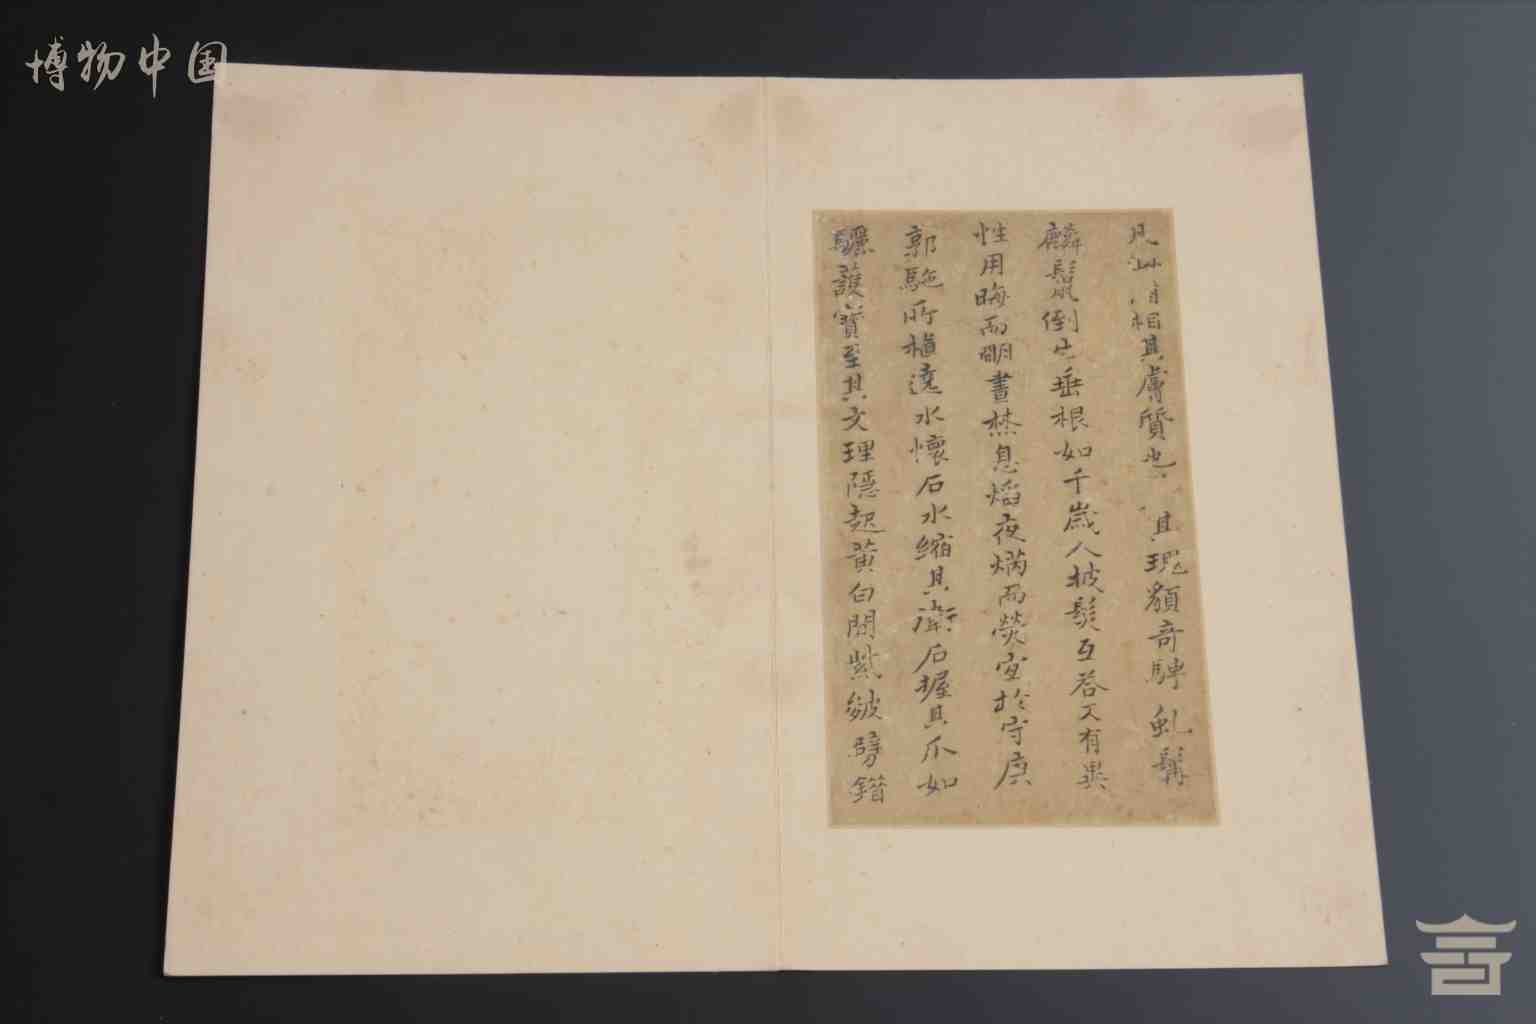 博物中国
相其膚質也其瑰額奇騁虬髯
麟鬣倒生垂根如千歲人披髮互卷又有異
性用晦而明晝焚息焰夜爇而熒宜於守庚
郭駞所植遶水懷石水縮其衛石握其爪如
驪護寶至其文理隱起黃白閒紫皴劈錯